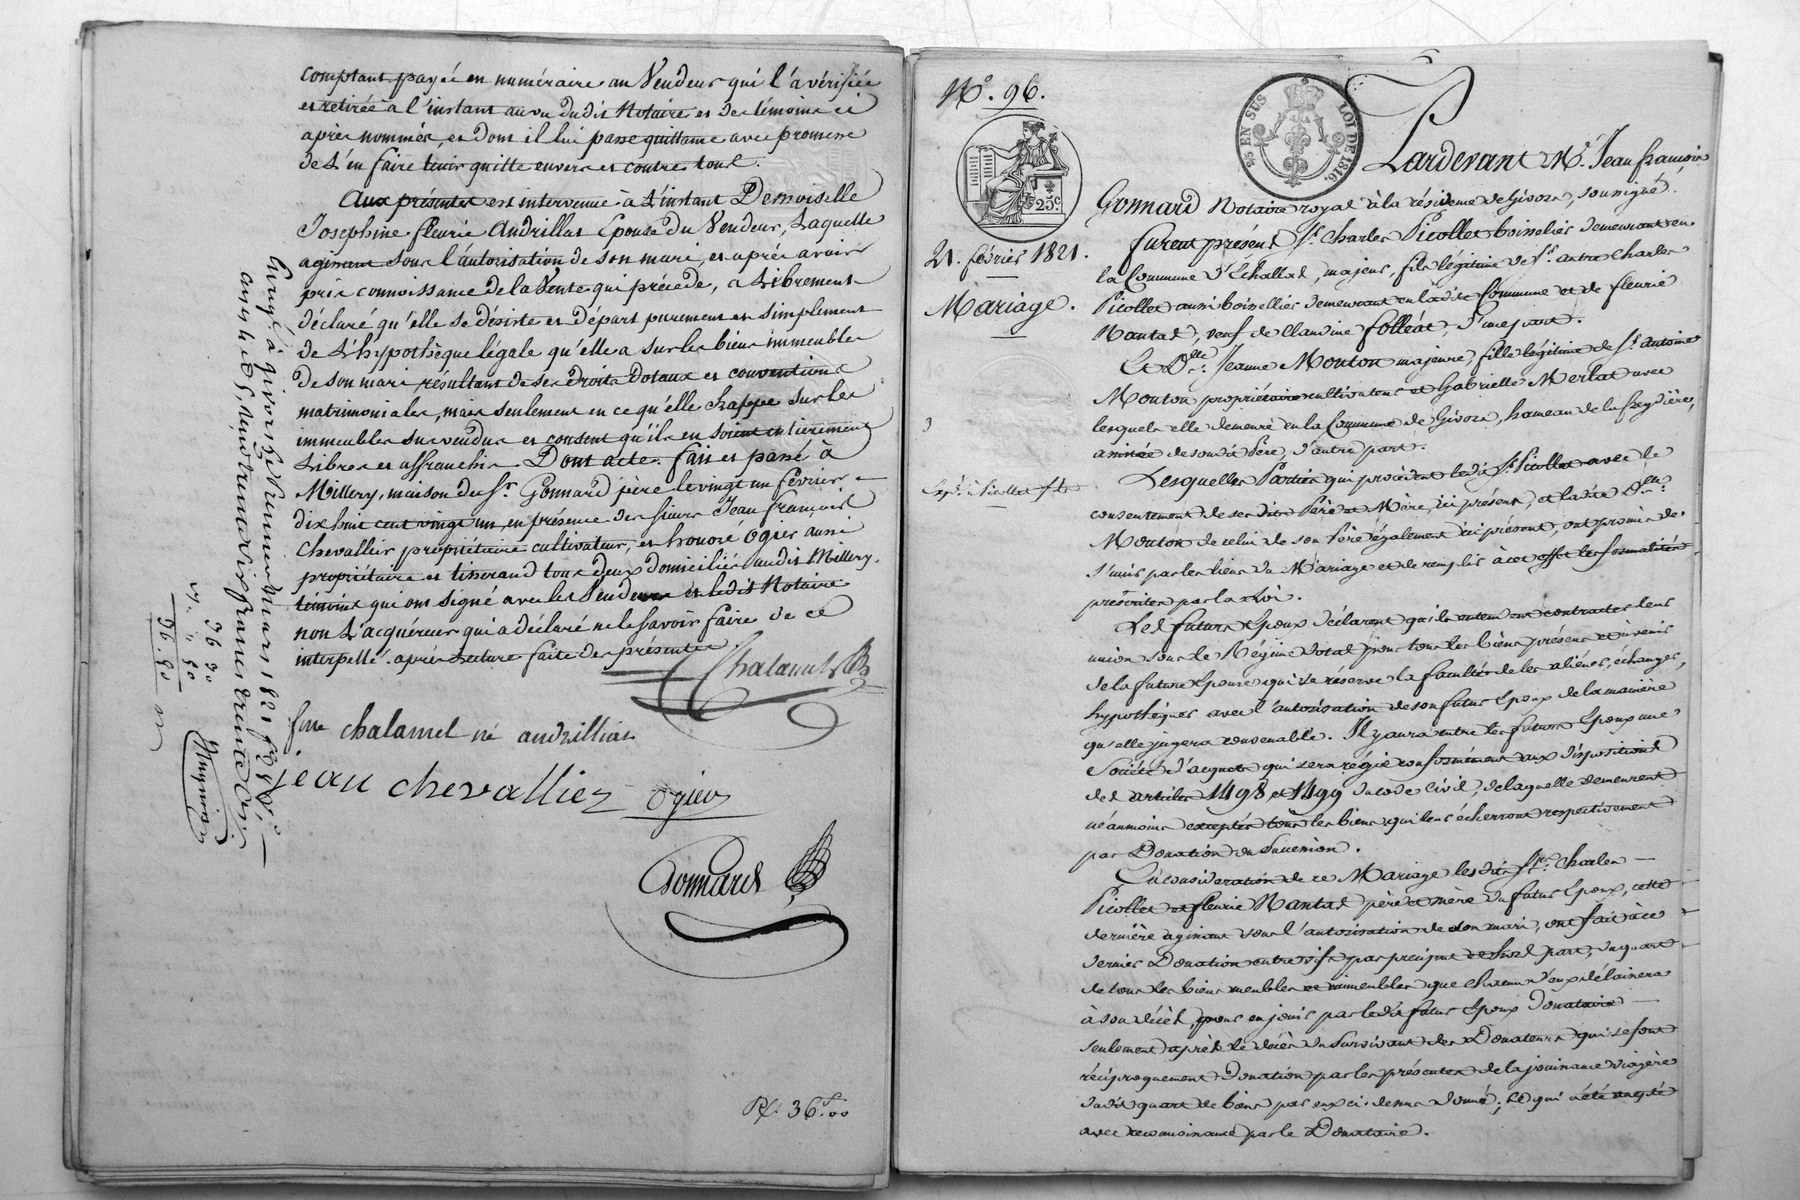 comptant payée en numéraire au Vendeur qui l'a vérifiée
et retirée à l'instant au vu dudit Notaire et des témoins ci
après nommés, et dont il lui passe quittance avec promesse
de l'en faire tenir quitte envers et contre tous.
Aux présentes est intervenue à l'instant Demoiselle
Josephine fleurie Andrillat Epouse du Vendeur, Laquelle
agissant sous l'autorisation de son mari, et après avoir
pris connoissance de la Vente qui précède, a Librement
déclaré qu'elle se désiste et Départ purement et simplement
de L'hypothèque légale qu'elle a sur les biens immeubles
de son mari résultant de ses droits dotaux et conventions
matrimoniales, mais seulement en ce qu'elle frappe sur les
immeubles sus vendus et consent qu'ils en soient entièrement
Libres et affranchis. Dont acte. fait et passé à
Millery, maison du Sr. Gonnard père le vingt un février
dix huit cent vingt un, en présence des sieurs Jean François
Chevallier propriétaire cultivateur, et honoré Ogier aussi
propriétaire et tisserand tous deux domiciliés audit Millery.
témoins qui ont signé avec les Vendeurs et ledit Notaire
non L'acquéreur qui a déclaré ne le savoir faire de ce
interpellé. après Lecture faite des présentes
Chalamel
fme chalamel né andrilliat
jean chevallier Ogier
Gonnard
Rf. 36 f. 00
Enregé à givors le premier mars 1821
36 30
96.80
No. 96.
25 EN SUS
LOI DE 1816.
25c
21. février 1821.
Mariage.
Pardevant Me. Jean françois
Gonnard Notaire royal à la résidence de Givors, soussigné.
furent présens Sr. Charles Picollet boisselier demeurant en
la Commune d'Echallas, majeur, fils légitime de Sr. autre Charles
Picollet aussi boisselier demeurant en ladite Commune et de fleurie
Nantas, veuf de Claudine folléat, d'une part.
Et Dlle. Jeanne Mouton majeure, fille légitime de Sr. Antoine
Mouton propriétaire cultivateur et Gabrielle Merlat avec
lesquels elle demeure en la Commune de Givors, hameau de la freydière,
assistée de son dit Père, d'autre part.
Lesquelles Parties qui procèdent ledit Sr. Picollet avec le
consentement de ses dits Père et Mère, ici présens, et ladite Dlle.
Mouton de celui de son Père également ici présent, ont promis de
s'unir par les liens du Mariage et de remplir à cet effet les formalités
prescrites par la Loi.
Les futurs Epoux déclarent qu'ils entendent contracter leur
union sous le Régime dotal pour tous les biens présens et à venir
de la future Epouse qui se réserve la faculté de les aliéner, échanger,
hypothéquer avec l'autorisation de son futur Epoux de la manière
qu'elle jugera convenable. Il y aura entre les futurs Epoux une
Société d'acquets qui sera régie conformément aux dispositions
des articles 1498 et 1499 du code civil, de laquelle demeurent
néanmoins exceptés tous les biens qui leur écherront respectivement
par Donation ou Succession.
En considération de ce Mariage lesdits Sr. Charles
Picollet et fleurie Nantas père et mère du futur Epoux, cette
dernière agissant sous l'autorisation de son mari, ont fait à ce
dernier Donation entre vifs par préciput et hors part, du quart
de tous les biens meubles et immeubles que chacun d'eux délaissera
à son décès, pour en jouir par ledit futur Epoux Donataire
seulement après le décès du survivant des Donateurs qui se font
réciproquement donation par les présentes de la jouissance viagère
dudit quart de biens par eux ci-dessus donné; ce qui a été accepté
avec reconnoissance par le Donataire.